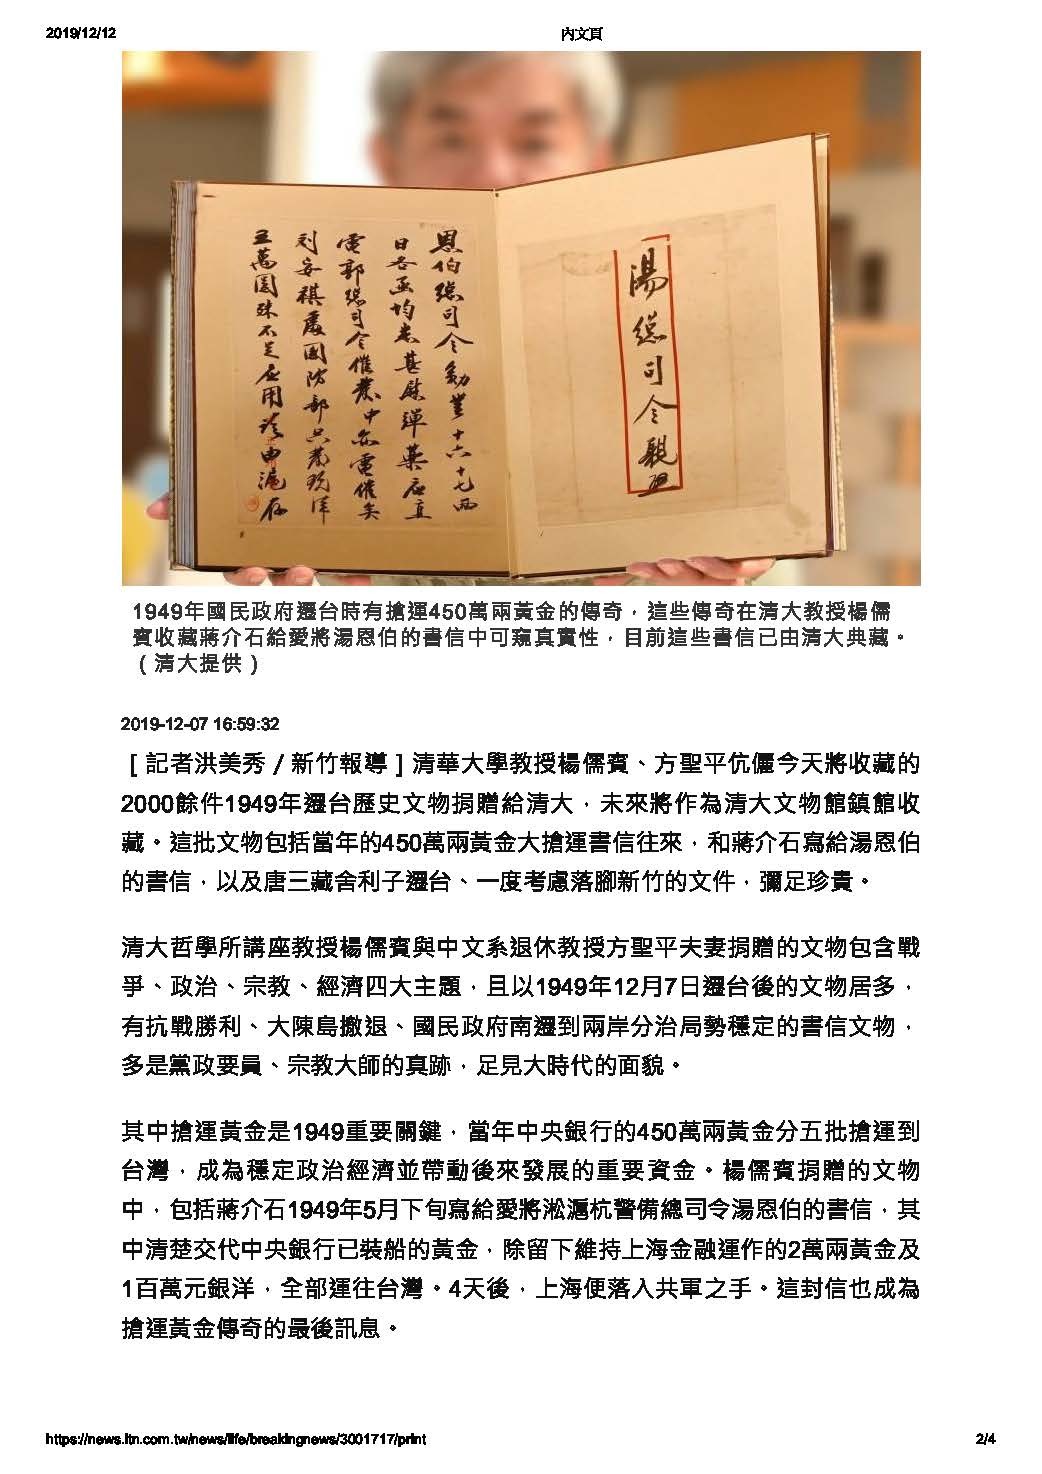 2019/12/12
內文頁
湯總司令親啟
恩伯總司令勳鑒十六十七兩
日各函均悉甚慰彈藥應直
電郭總司令催農中亦電催矣
劉安祺處國防部只發現洋
五萬圓殊不足應用
1949年國民政府遷台時有搶運450萬兩黃金的傳奇，這些傳奇在清大教授楊儒
賓收藏蔣介石給愛將湯恩伯的書信中可窺真實性，目前這些書信已由清大典藏。
（清大提供）
2019-12-07 16:59:32
［記者洪美秀／新竹報導］清華大學教授楊儒賓、方聖平伉儷今天將收藏的
2000餘件1949年遷台歷史文物捐贈給清大，未來將作為清大文物館鎮館收
藏。這批文物包括當年的450萬兩黃金大搶運書信往來，和蔣介石寫給湯恩伯
的書信，以及唐三藏舍利子遷台、一度考慮落腳新竹的文件，彌足珍貴。
清大哲學所講座教授楊儒賓與中文系退休教授方聖平夫妻捐贈的文物包含戰
爭、政治、宗教、經濟四大主題，且以1949年12月7日遷台後的文物居多，
有抗戰勝利、大陳島撤退、國民政府南遷到兩岸分治局勢穩定的書信文物，
多是黨政要員、宗教大師的真跡，足見大時代的面貌。
其中搶運黃金是1949重要關鍵，當年中央銀行的450萬兩黃金分五批搶運到
台灣，成為穩定政治經濟並帶動後來發展的重要資金。楊儒賓捐贈的文物
中，包括蔣介石1949年5月下旬寫給愛將淞滬杭警備總司令湯恩伯的書信，其
中清楚交代中央銀行已裝船的黃金，除留下維持上海金融運作的2萬兩黃金及
1百萬元銀洋，全部運往台灣。4天後，上海便落入共軍之手。這封信也成為
搶運黃金傳奇的最後訊息。
https://news.ltn.com.tw/news/life/breakingnews/3001717/print
2/4